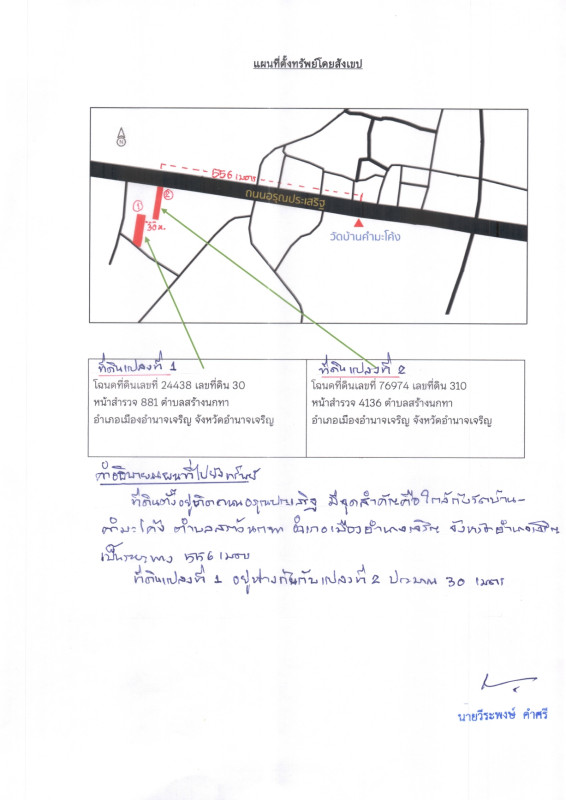 แผนที่ตั้งทรัพย์โดยสังเขป
N
556 เมตร
ถนนอรุณประเสริฐ
①
②
30 ม.
วัดบ้านคำมะโค้ง
ที่ดินแปลงที่ 1
โฉนดที่ดินเลขที่ 24438 เลขที่ดิน 30
หน้าสำรวจ 881 ตำบลสร้างนกทา
อำเภอเมืองอำนาจเจริญ จังหวัดอำนาจเจริญ
ที่ดินแปลงที่ 2
โฉนดที่ดินเลขที่ 76974 เลขที่ดิน 310
หน้าสำรวจ 4136 ตำบลสร้างนกทา
อำเภอเมืองอำนาจเจริญ จังหวัดอำนาจเจริญ
คำอธิบายแผนที่ไปยังทรัพย์
ที่ดินตั้งอยู่ติดถนนอรุณประเสริฐ มีจุดสำคัญคือใกล้กับวัดบ้าน-
คำมะโค้ง ตำบลสร้างนกทา อำเภอเมืองอำนาจเจริญ จังหวัดอำนาจเจริญ
เป็นระยะทาง 556 เมตร
ที่ดินแปลงที่ 1 อยู่ห่างกันกับแปลงที่ 2 ประมาณ 30 เมตร
นายวีระพงษ์ คำศรี